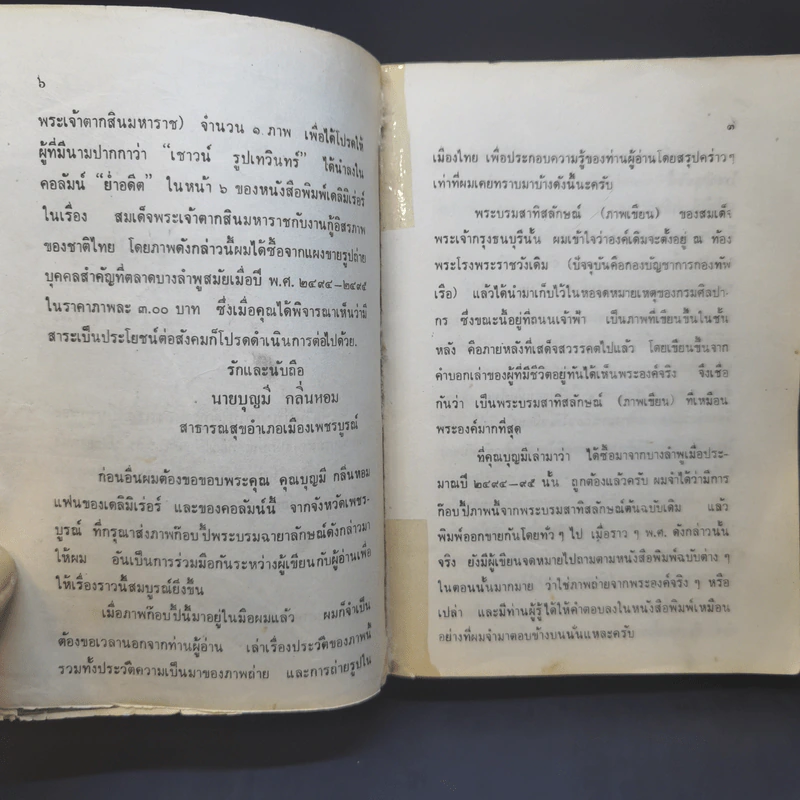 ๖
พระเจ้าตากสินมหาราช) จำนวน ๑ ภาพ เพื่อได้โปรดให้
ผู้ที่มีนามปากกาว่า “เชาวน์ รูปเทวินทร์” ได้นำลงใน
คอลัมน์ “ย่ำอดีต” ในหน้า ๖ ของหนังสือพิมพ์เดลิมิเร่อร์
ในเรื่อง สมเด็จพระเจ้าตากสินมหาราชกับงานกู้อิสรภาพ
ของชาติไทย โดยภาพดังกล่าวนี้ผมได้ซื้อจากแผงขายรูปถ่าย
บุคคลสำคัญที่ตลาดบางลำพูสมัยเมื่อปี พ.ศ. ๒๔๙๔–๒๔๙๕
ในราคาภาพละ ๓.๐๐ บาท ซึ่งเมื่อคุณได้พิจารณาเห็นว่ามี
สาระเป็นประโยชน์ต่อสังคมก็โปรดดำเนินการต่อไปด้วย.
รักและนับถือ
นายบุญมี กลิ่นหอม
สาธารณสุขอำเภอเมืองเพชรบูรณ์
ก่อนอื่นผมต้องขอขอบพระคุณ คุณบุญมี กลิ่นหอม
แฟนของเดลิมิเร่อร์ และของคอลัมน์นี้ จากจังหวัดเพชร-
บูรณ์ ที่กรุณาส่งภาพก๊อบปี้พระบรมฉายาลักษณ์ดังกล่าวมา
ให้ผม อันเป็นการร่วมมือกันระหว่างผู้เขียนกับผู้อ่านเพื่อ
ให้เรื่องราวนี้สมบูรณ์ยิ่งขึ้น
เมื่อภาพก๊อบปี้นี้มาอยู่ในมือผมแล้ว ผมก็จำเป็น
ต้องขอเวลานอกจากท่านผู้อ่าน เล่าเรื่องประวัติของภาพนี้
รวมทั้งประวัติความเป็นมาของภาพถ่าย และการถ่ายรูปใน
๗
เมืองไทย เพื่อประกอบความรู้ของท่านผู้อ่านโดยสรุปคร่าวๆ
เท่าที่ผมเคยทราบมาบ้างดังนี้นะครับ
พระบรมสาทิสลักษณ์ (ภาพเขียน) ของสมเด็จ
พระเจ้ากรุงธนบุรีนั้น ผมเข้าใจว่าองค์เดิมจะตั้งอยู่ ณ ท้อง
พระโรงพระราชวังเดิม (ปัจจุบันคือกองบัญชาการกองทัพ
เรือ) แล้วได้นำมาเก็บไว้ในหอจดหมายเหตุของกรมศิลปา-
กร ซึ่งขณะนี้อยู่ที่ถนนเจ้าฟ้า เป็นภาพที่เขียนขึ้นในชั้น
หลัง คือภายหลังที่เสด็จสวรรคตไปแล้ว โดยเขียนขึ้นจาก
คำบอกเล่าของผู้ที่มีชีวิตอยู่ทันได้เห็นพระองค์จริง จึงเชื่อ
กันว่า เป็นพระบรมสาทิสลักษณ์ (ภาพเขียน) ที่เหมือน
พระองค์มากที่สุด
ที่คุณบุญมีเล่ามาว่า ได้ซื้อมาจากบางลำพูเมื่อประ-
มาณปี ๒๔๙๔–๙๕ นั้น ถูกต้องแล้วครับ ผมจำได้ว่ามีการ
ก๊อบปี้ภาพนี้จากพระบรมสาทิสลักษณ์ต้นฉบับเดิม แล้ว
พิมพ์ออกขายกันโดยทั่วๆ ไป เมื่อราวๆ พ.ศ. ดังกล่าวนั้น
จริง ยังมีผู้เขียนจดหมายไปถามตามหนังสือพิมพ์ฉบับต่างๆ
ในตอนนั้นมากมาย ว่าใช่ภาพถ่ายจากพระองค์จริงๆ หรือ
เปล่า และมีท่านผู้รู้ได้ให้คำตอบลงในหนังสือพิมพ์เหมือน
อย่างที่ผมจำมาตอบข้างบนนั่นแหละครับ